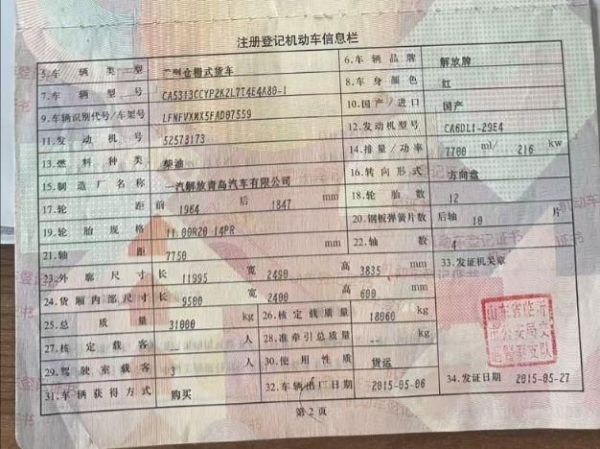 注册登记机动车信息栏
5.车辆类型 重型仓栅式货车 6.车辆品牌 解放牌
7.车辆型号 CA5313CCYP2K2L7T4E4A80-1 8.车身颜色 红
9.车辆识别代号/车架号 LFNFVXMX5FAD07559 10.国产/进口 国产
11.发动机号 52573173 12.发动机型号 CA6DL1-29E4
13.燃料种类 柴油 14.排量/功率 7700 ml/ 216 kw
15.制造厂名称 一汽解放青岛汽车有限公司 16.转向形式 方向盘
17.轮距 前 1964 后 1847 mm 18.轮胎数 12
19.轮胎规格 11.00R20 14PR 20.钢板弹簧片数 后轴 10 片
21.轴距 7750 mm 22.轴数 4
23.外廓尺寸 长 11995 宽 2490 高 3835 mm 33.发证机关章
24.货厢内部尺寸 长 9500 宽 2400 高 600 mm
25.总质量 31000 kg 26.核定载质量 18060 kg
27.核定载客 -- 人 28.准牵引总质量 -- kg
29.驾驶室载客 3 人 30.使用性质 货运
山东省临沂
市公安局交
通警察支队
31.车辆获得方式 购买 32.车辆出厂日期 2015-05-06 34.发证日期 2015-05-27
第2页